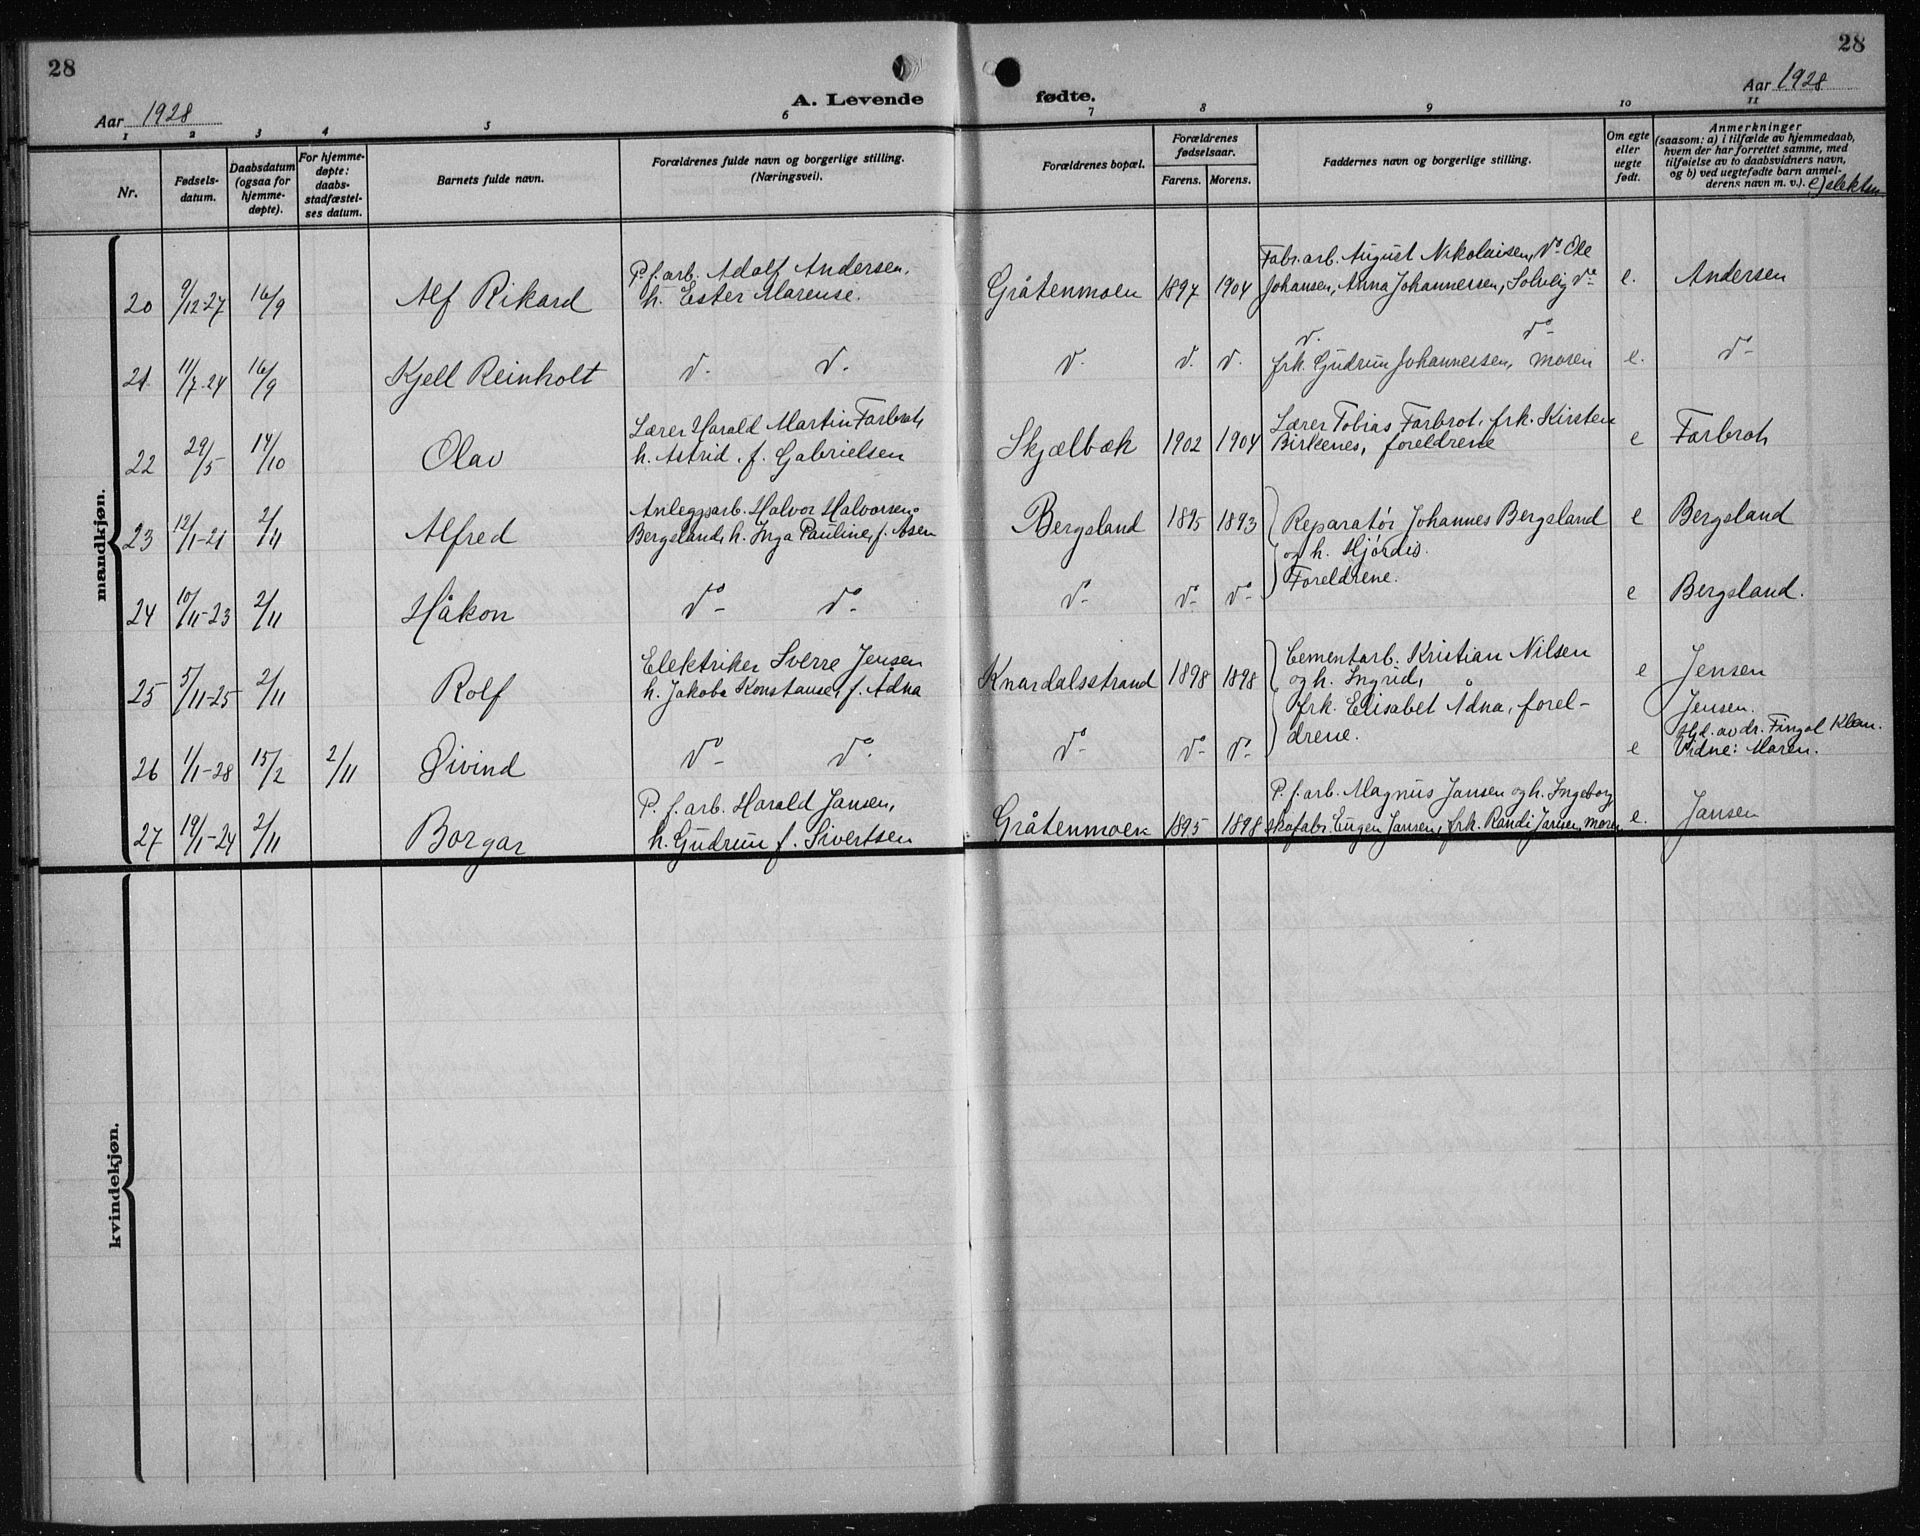 28
28
Aar 1928
A. Levende
fødte.
Aar 1928
1 2 3 4 5 6 7 8 9 10 11
Nr.
Fødsels-
datum.
Daabsdatum
(ogsaa for
hjemme-
døpte).
For hjemme-
døpte:
daabs-
stadfæstel-
ses datum.
Barnets fulde navn.
Forældrenes fulde navn og borgerlige stilling.
(Næringsvei).
Forældrenes bopæl.
Forældrenes
fødselsaar.
Farens. Morens.
Faddernes navn og borgerlige stilling.
Om egte
eller
uegte
født.
Anmerkninger
(saasom: a) i tilfælde av hjemmedaab,
hvem der har forrettet samme, med
tilføielse av to daabsvidners navn,
og b) ved uegtefødte barn anmel-
derens navn m. v.). c) slektsn
mandkjøn.
20 9/12-27 16/9 Alf Rikard
P. f. arb. Adolf Andersen,
h. Ester Marense.
Gråtenmoen 1897 1904
Fabr. arb. August Nikolaisen, do Ole
Johansen, Anna Johannersen, Solveig do
e. Andersen
21 11/7-24 16/9 Kjell Reinholt
d. d. d. d. d.
d. do
frk. Gudrun Johannersen, moren
e. do
22 29/5 14/10 Olav
Lærer Harald Martin Farbrot,
h. Astrid, f. Gabrielsen
Skjælbæk 1902 1904
Lærer Tobias Farbrot, frk. Kirsten
Birkenes, foreldrene
e Farbrot
23 12/1-21 2/11 Alfred
Anleggsarb. Halvor Halvorsen
Bergsland, h. Inga Pauline, f. Åsen
Bergsland 1895 1893
Reparatør Johannes Bergsland
og h. Hjørdis.
Foreldrene.
e Bergsland
24 10/11-23 2/11 Håkon
do do do do do
e Bergsland.
25 5/11-25 2/11 Rolf
Elektriker Sverre Jensen
h. Jakoba Konstanse, f. Ådna
Knardalsstrand 1898 1898
Cementarb. Kristian Nilsen
og h. Ingrid,
frk. Elisabet Ådna, forel-
drene.
e Jensen
26 1/1-28 15/2 2/11 Øivind
do do do do do
e Jensen.
Hjd. av dr. Fingal
Vidne: Moren.
27 19/1-24 2/11 Borgar
P. f. arb. Harald Jansen,
h. Gudrun f. Sivertsen
Gråtenmoen 1895 1898
P. f. arb. Magnus Jansen og h. Ingeborg,
skofabr. Eugen Jansen, frk. Randi Jansen, moren
e. Jansen
kvindekjøn.